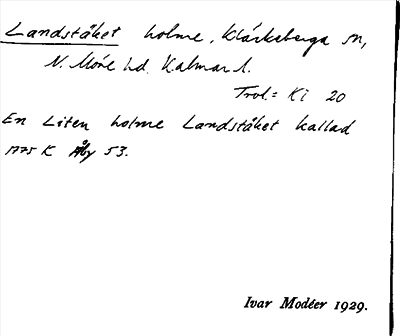 Landstäket holme, Kläckeberga sn,
N. Möre hd. Kalmar l.
Trol.= Ki 20
En Liten holme Landstäket kallad
1775 K Åby 53.
Ivar Modéer 1929.